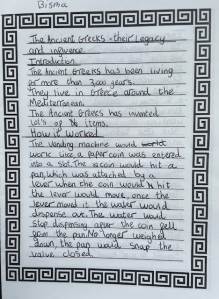 Bisma
The Ancient Greeks - their Legacy
and influence
Introduction
The Ancient Greeks has been living
for more than 3,000 years.
They live in Greece around the
Mediterranean
The Ancient Greeks has invented
lot's of items.
How it worked
The vending machine would
work like a paper coin was entered
into a slot. The coin would hit a
pan, which was attached by a
lever when the coin would hit
the lever would move, once the
lever moved it the water would
dispense out. The water would
stop dispensing after the coin fell
from the pan. No longer weighed
down, the pan would snap the
valve closed.